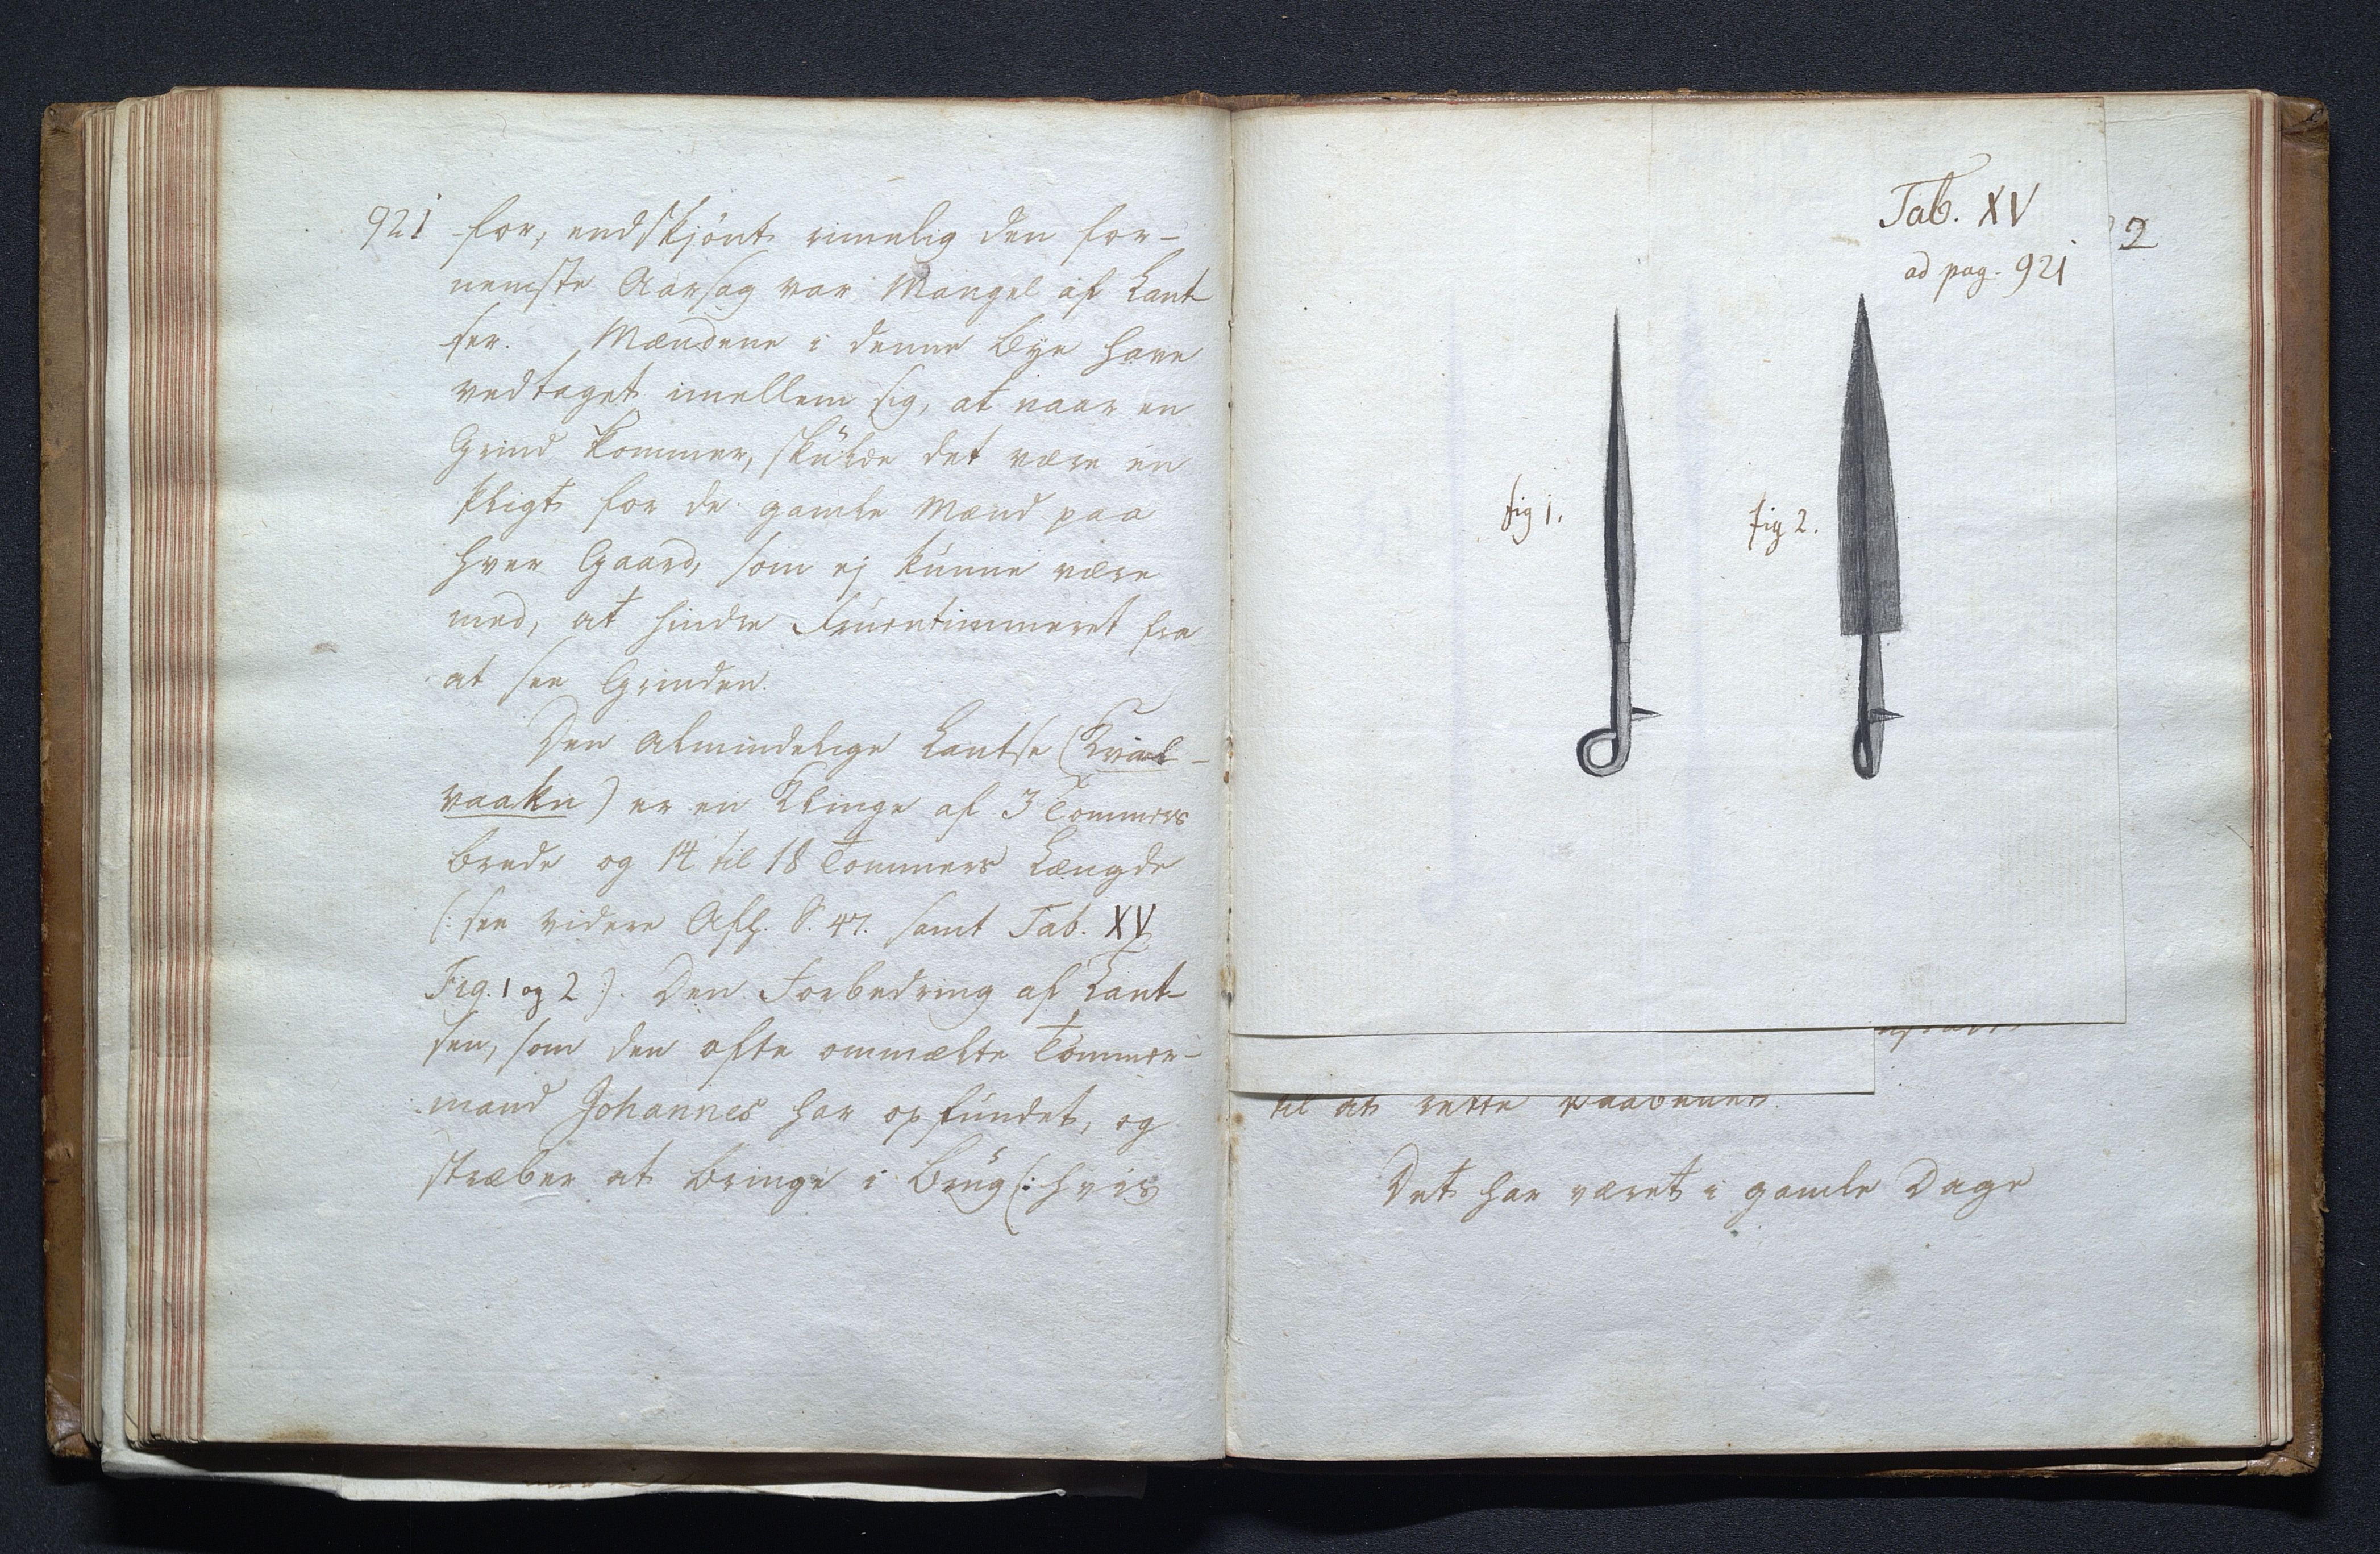 921 for, endskjönt rimelig den for-
nemste Aarsag var Mangel af Lant
ser. Mændene i denne Bye have
vedtaget imellem sig, at naar en
Grind kommer, skulde det være en
Pligt for de gamle Mænd paa
hver Gaard, som ej kunne være
med, at hindre Fruentimmeret fra
at see Grinden.
Den almindelige Lantse (Kval-
vaakn) er en Klinge af 3 Tommers
brede og 14 til 18 Tommers Længde
(: see videre Afh. S. 47. samt Tab. XV
Fig. 1 og 2 :). Den Forbedring af Lant-
sen, som den ofte ommælte Tömmer-
mand Johannes har opfundet, og
stræber at bringe i Brug (: hvis
Tab. XV
ad pag. 921
2
fig 1.
fig 2.
til at rette Vaabenet.
Det har været i gamle Dage